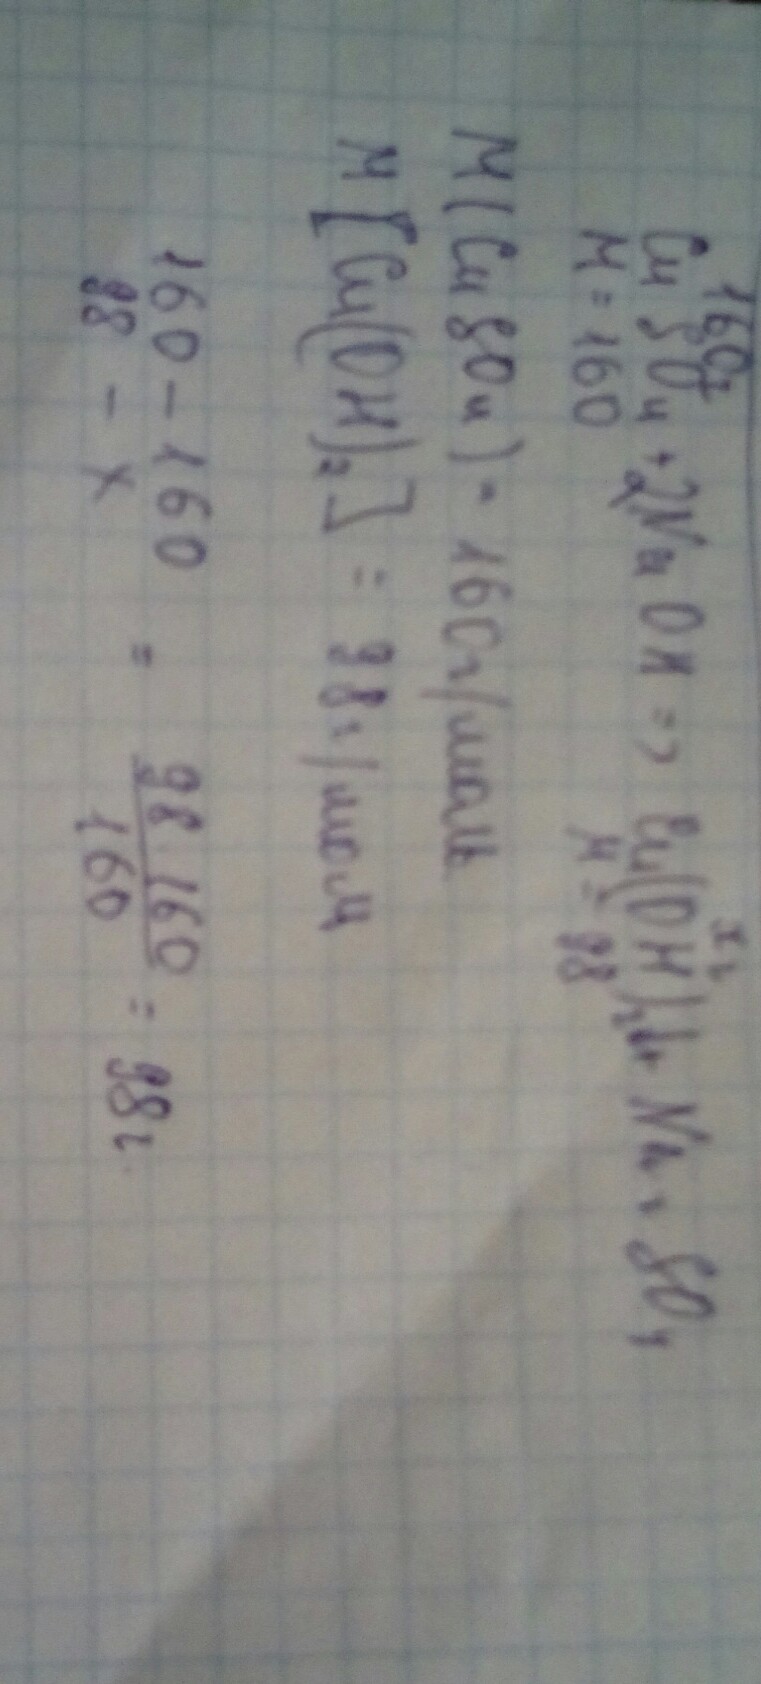 160г хг
CuSO4 + 2NaOH => Cu(OH)2↓ + Na2SO4
M = 160 M = 98
M(CuSO4) = 160г/моль
M[Cu(OH)2] = 98г/моль
160 - 160
98 - х = 98·160/160 = 98г